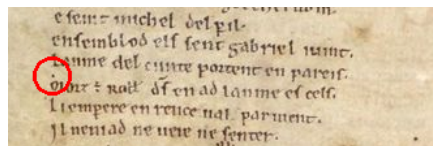 e seint michel del pil.
ensemblod els sent gabriel i uint.
Lanme del cunte portent en pareis.
Morz ÷ Roll' d̅s en ad lanme es cels.
Li empere en rence ual paruient.
Il nen iad ne ueie ne senter.